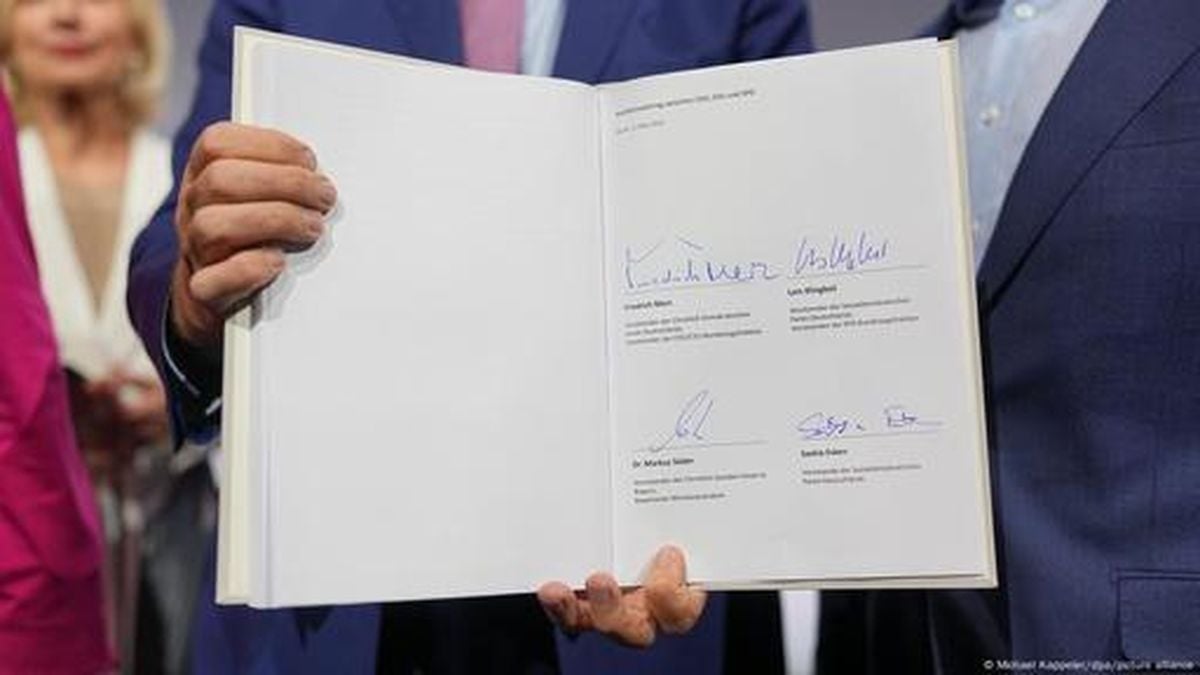 Koalitionsvertrag zwischen CDU, CSU und SPD
Berlin, 5. Mai 2025
Friedrich Merz
Lars Klingbeil
Vorsitzender der Christlich Demokratischen
Union Deutschlands
Vorsitzender der CDU/CSU-Bundestagsfraktion
Vorsitzender der Sozialdemokratischen
Partei Deutschlands
Vorsitzender der SPD-Bundestagsfraktion
Dr. Markus Söder
Saskia Esken
Vorsitzender der Christlich-Sozialen Union in
Bayern
Bayerischer Ministerpräsident
Vorsitzende der Sozialdemokratischen
Partei Deutschlands
© Michael Kappeler/dpa/picture alliance